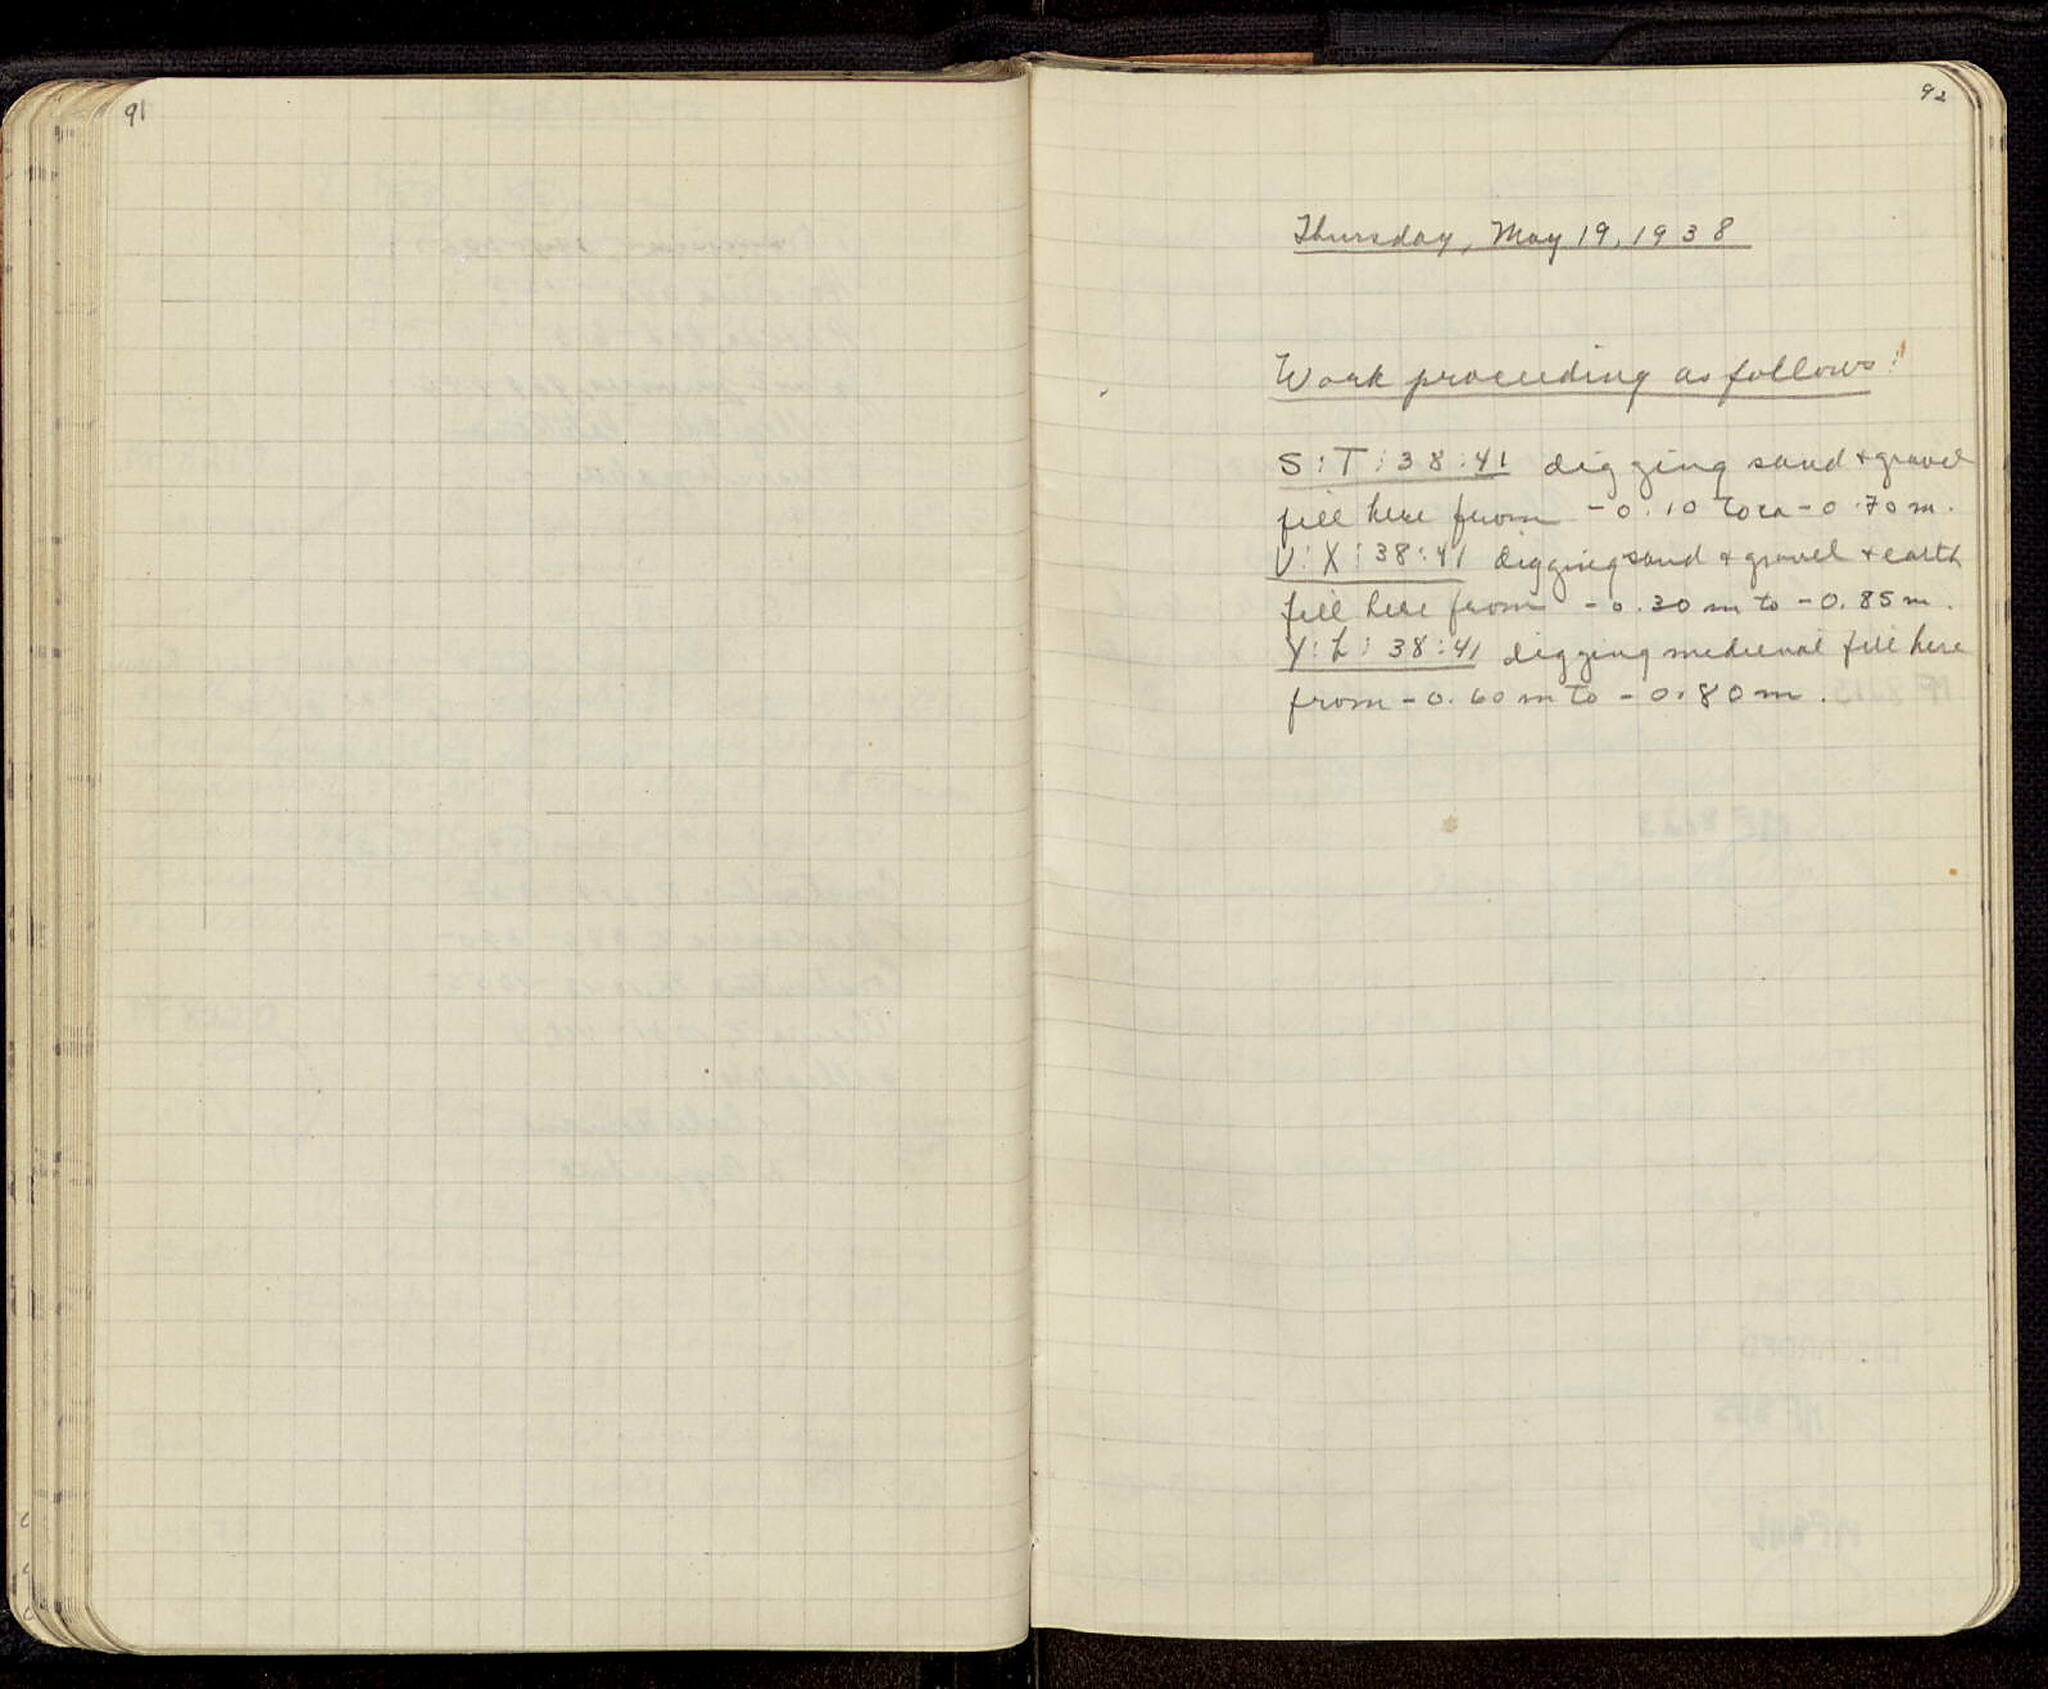 91
92
Thursday, May 19, 1938
Work proceeding as follows:
S:T:38:41 digging sand + gravel
fill here from -0.10 to ca -0.70 m.
U:X:38:41 digging sand + gravel + earth
fill here from -0.30 m to -0.85 m.
Y:Z:38:41 digging medieval fill here
from -0.60 m to -0.80 m.